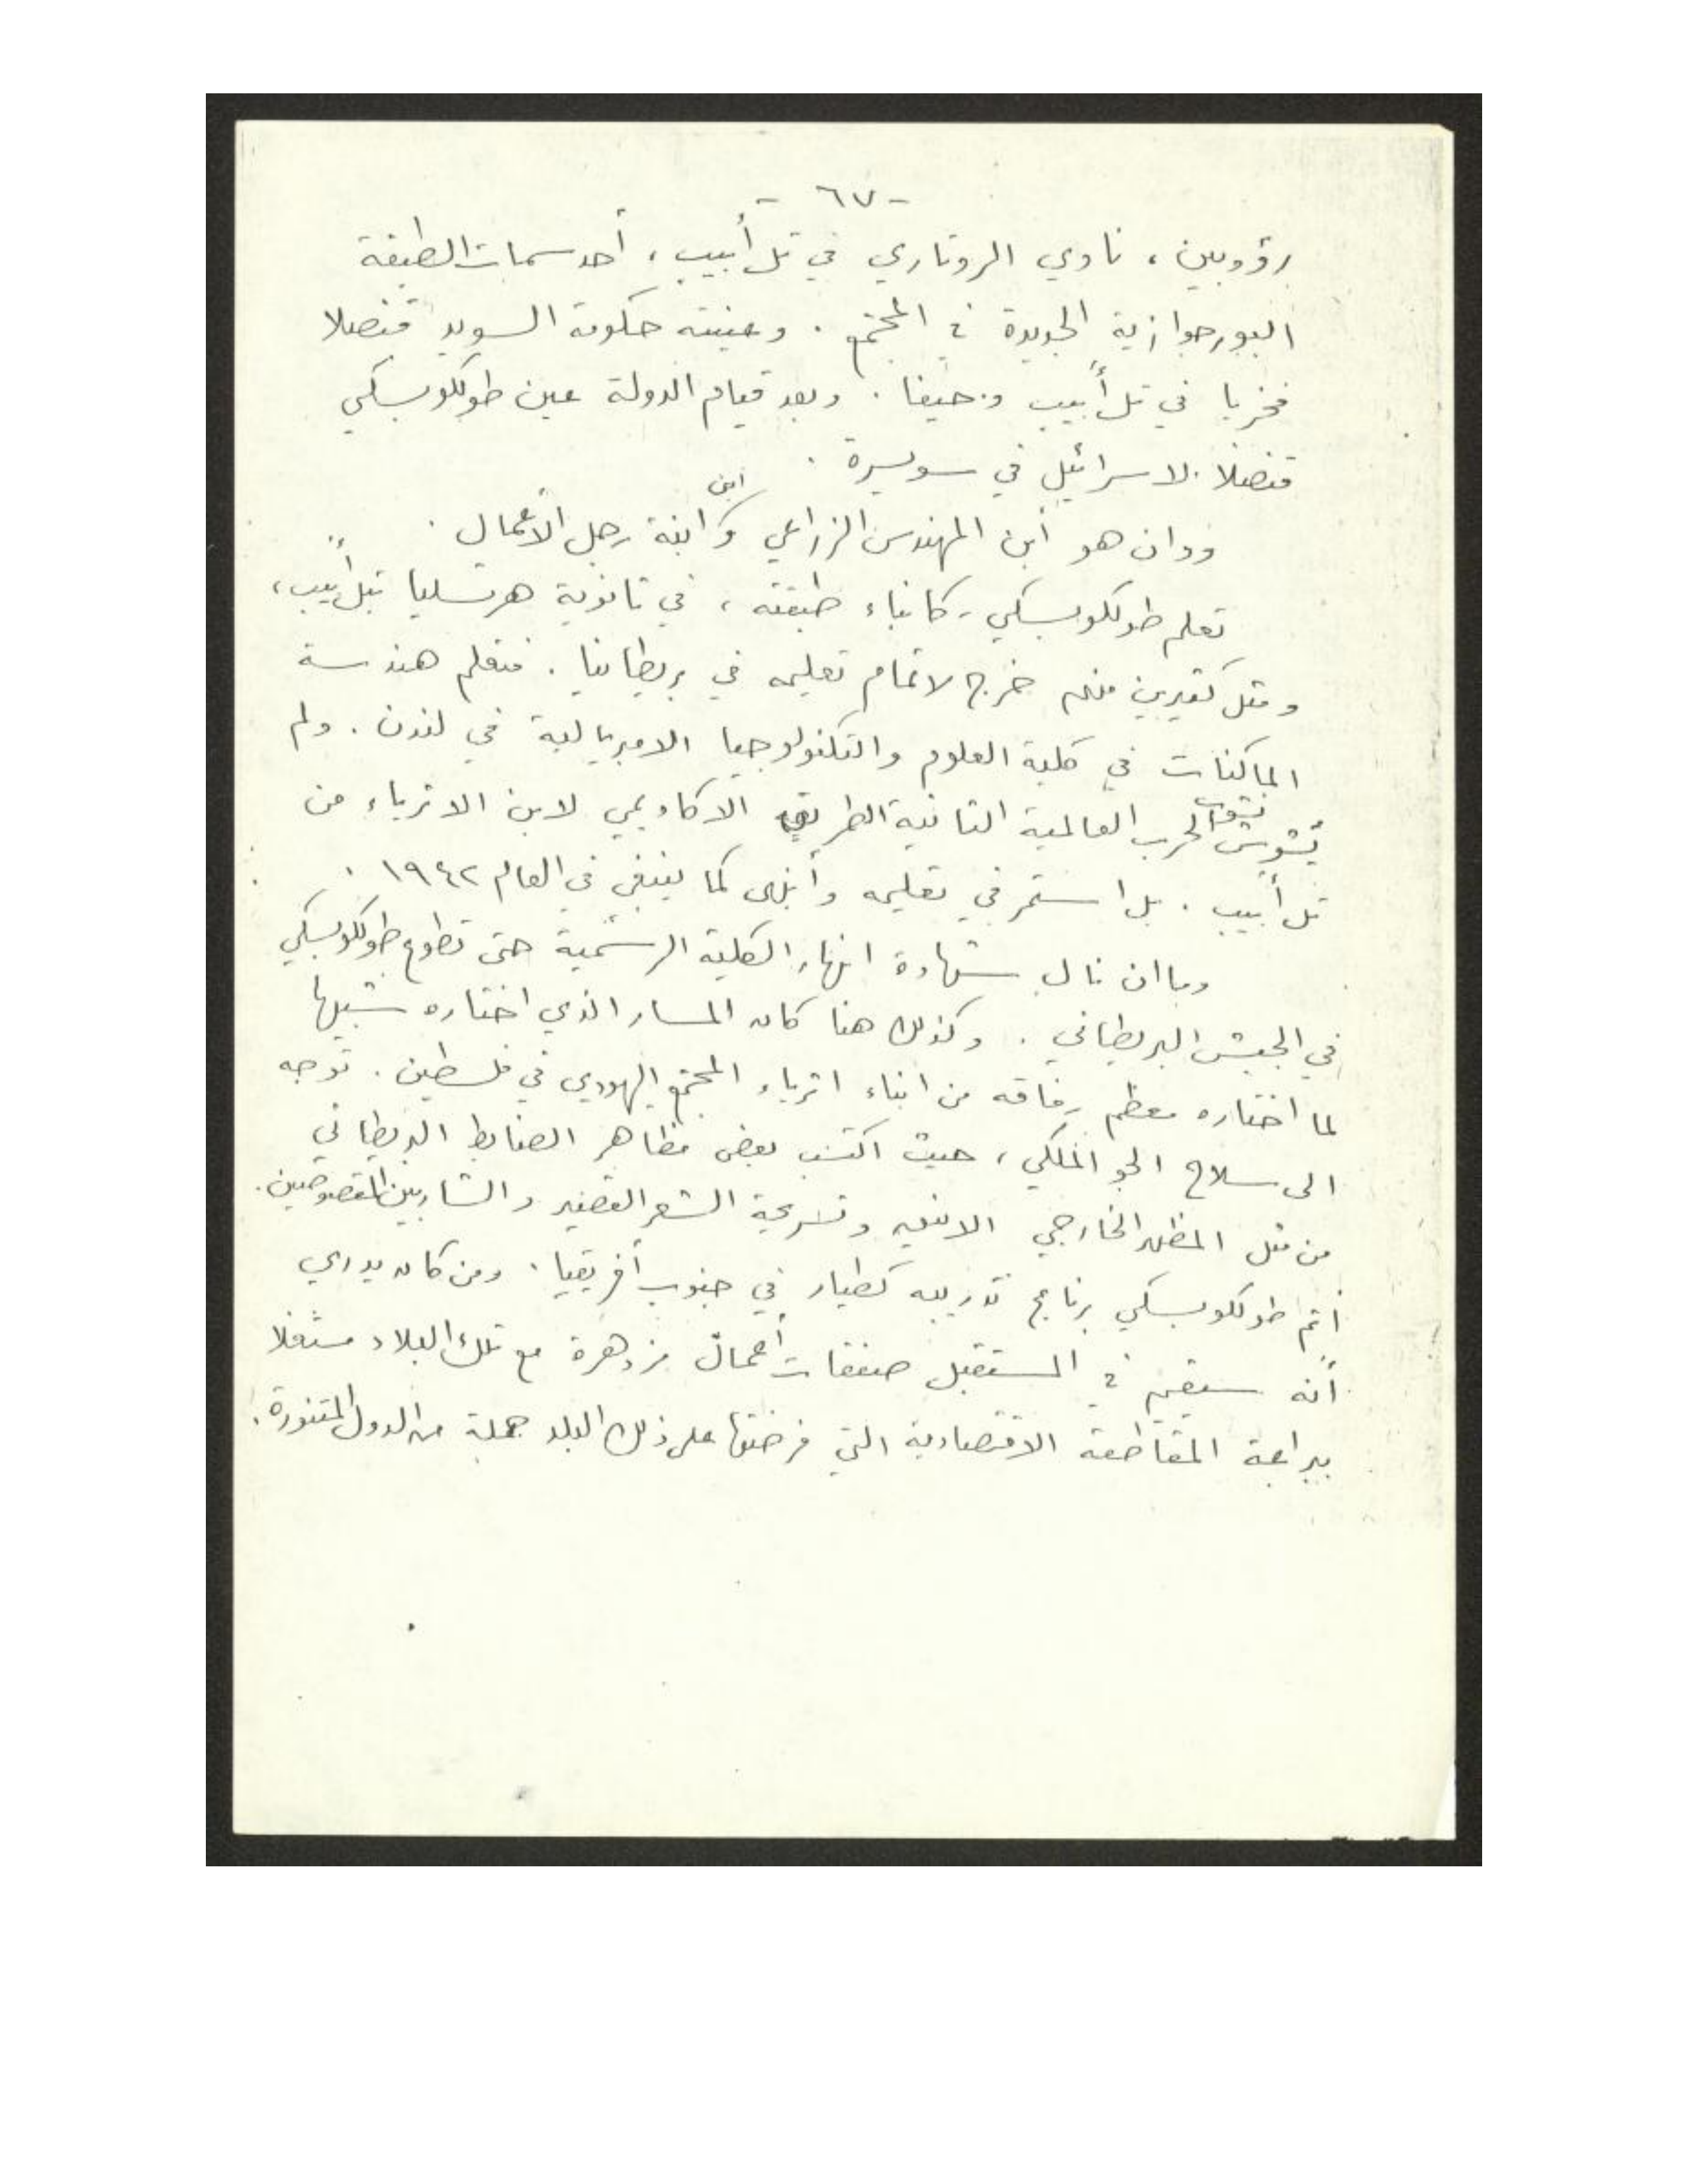 - ٦٧ -
رؤوبين ، نادي الروتاري في تل أبيب ، أحد سمات الطبقة
البورجوازية الجديدة في المجتمع . وعينته حكومة السويد قنصلا
فخريا في تل أبيب وحيفا . وبعد قيام الدولة عين طولكوبسكي
قنصلا لاسرائيل في سويسرة .
ودان هو أبن المهندس الزراعي وابن ابنة رجل الأعمال .
تعلم طولكوبسكي ، كابناء طبقته ، في ثانوية هرتسليا بتل أبيب ،
ومثل كثيرين منهم خرج لاتمام تعليمه في بريطانيا . فتعلم هندسة
الماكنات في كلية العلوم والتكنولوجيا الامبريالية في لندن . ولم
تشوش الحرب العالمية الثانية الطريق الاكاديمي لابن الاثرياء من
تل أبيب . بل استمر في تعليمه وأنهى كما ينبغي في العام ١٩٤٢ .
وما ان نال شهادة انهاء الكلية الرسمية حتى تطوع طولكوبسكي
في الجيش البريطاني . وكذلك هنا كان المسار الذي اختاره شبيها
لما اختاره معظم رفاقه من ابناء اثرياء المجتمع اليهودي في فلسطين . توجه
الى سلاح الجو الملكي ، حيث اكتسب بعض مظاهر الضابط البريطاني
من مثل المظهر الخارجي الانيق وتسريحة الشعر القصير والشاربين المقصوصين .
أتم طولكوبسكي برنامج تدريبه كطيار في جنوب أفريقيا . ومن كان يدري
أنه سيقيم في المستقبل صفقات أعمال مزدهرة مع تلك البلاد مستغلا
ببراعة المقاطعة الاقتصادية التي فرضتها على ذلك البلد جملة من الدول المتنورة .